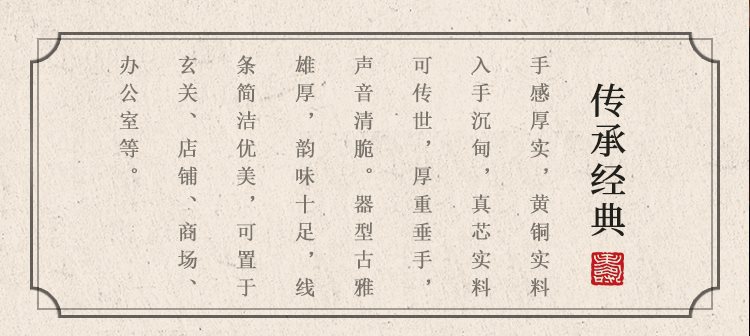 传承经典
手感厚实，黄铜实料
入手沉甸，真芯实料
可传世，厚重垂手，
声音清脆。器型古雅
雄厚，韵味十足，线
条简洁优美，可置于
玄关、店铺、商场、
办公室等。